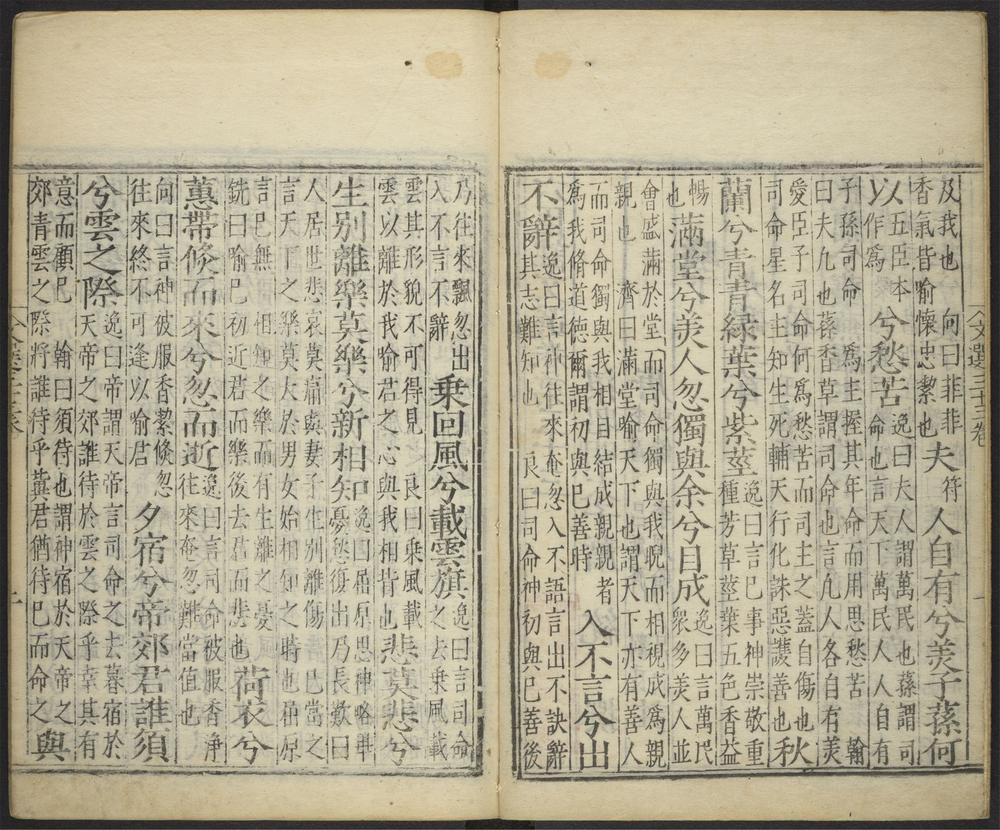 文選三十三卷
及我也　向曰非非
香氣皆喻懷忠潔也
夫符人自有兮美子蓀何
以五臣本作爲兮愁苦逸曰夫人謂萬民也蓀謂司
命也言天下萬民人人自有
子孫司命爲主握其年命而用思愁苦　翰
曰夫凡也蓀香草謂司命也言凡人各自有美
愛臣子司命何爲愁苦而司主之蓋自傷也
司命星名主知生死輔天行化誅惡護善也
秋
蘭兮青青綠葉兮紫莖逸曰言已事神崇敬重
種芳草莖葉五色香益
暢
也
滿堂兮美人忽獨與余兮目成逸曰言萬民
衆多美人並
會盛滿於堂而司命獨與我睨而相視成爲親
親也　濟曰滿堂喻天下也謂天下亦有善人
而司命獨與我相目結成親親者
爲我脩道德爾謂初與已善時
入不言兮出
不辭逸曰言神往來奄忽入不語言出不訣辭
其志難知也　良曰司命神初與已善後
乃往來飄忽出
入不言不辭
乘回風兮載雲旗逸曰言司命
之去乗風載
雲其形貌不可得見　良曰乗風載
雲以離於我喻君之心與我相背也
悲莫悲兮
生別離樂莫樂兮新相知逸曰屈原思神略畢
憂愁復出乃長歎曰
人居世悲哀莫痛與妻子生別離傷已當之
言天下之樂莫大於男女始相知之時也屈原
言已無相知之樂而有生離之憂
銑曰喻已初近君而樂後去君而悲也
荷衣兮
蕙帶倏而來兮忽而逝逸曰言司命被服香淨
往來奄忽難當值也
向曰言神被服香潔倏忽
往來終不可逢以喻君
夕宿兮帝郊君誰須
兮雲之際逸曰帝謂天帝言司命之去暮宿於
天帝之郊誰待於雲之際乎幸其有
意而顧已　翰曰須待也謂神宿於天帝之
郊青雲之際將誰待乎冀君猶待已而命之
與